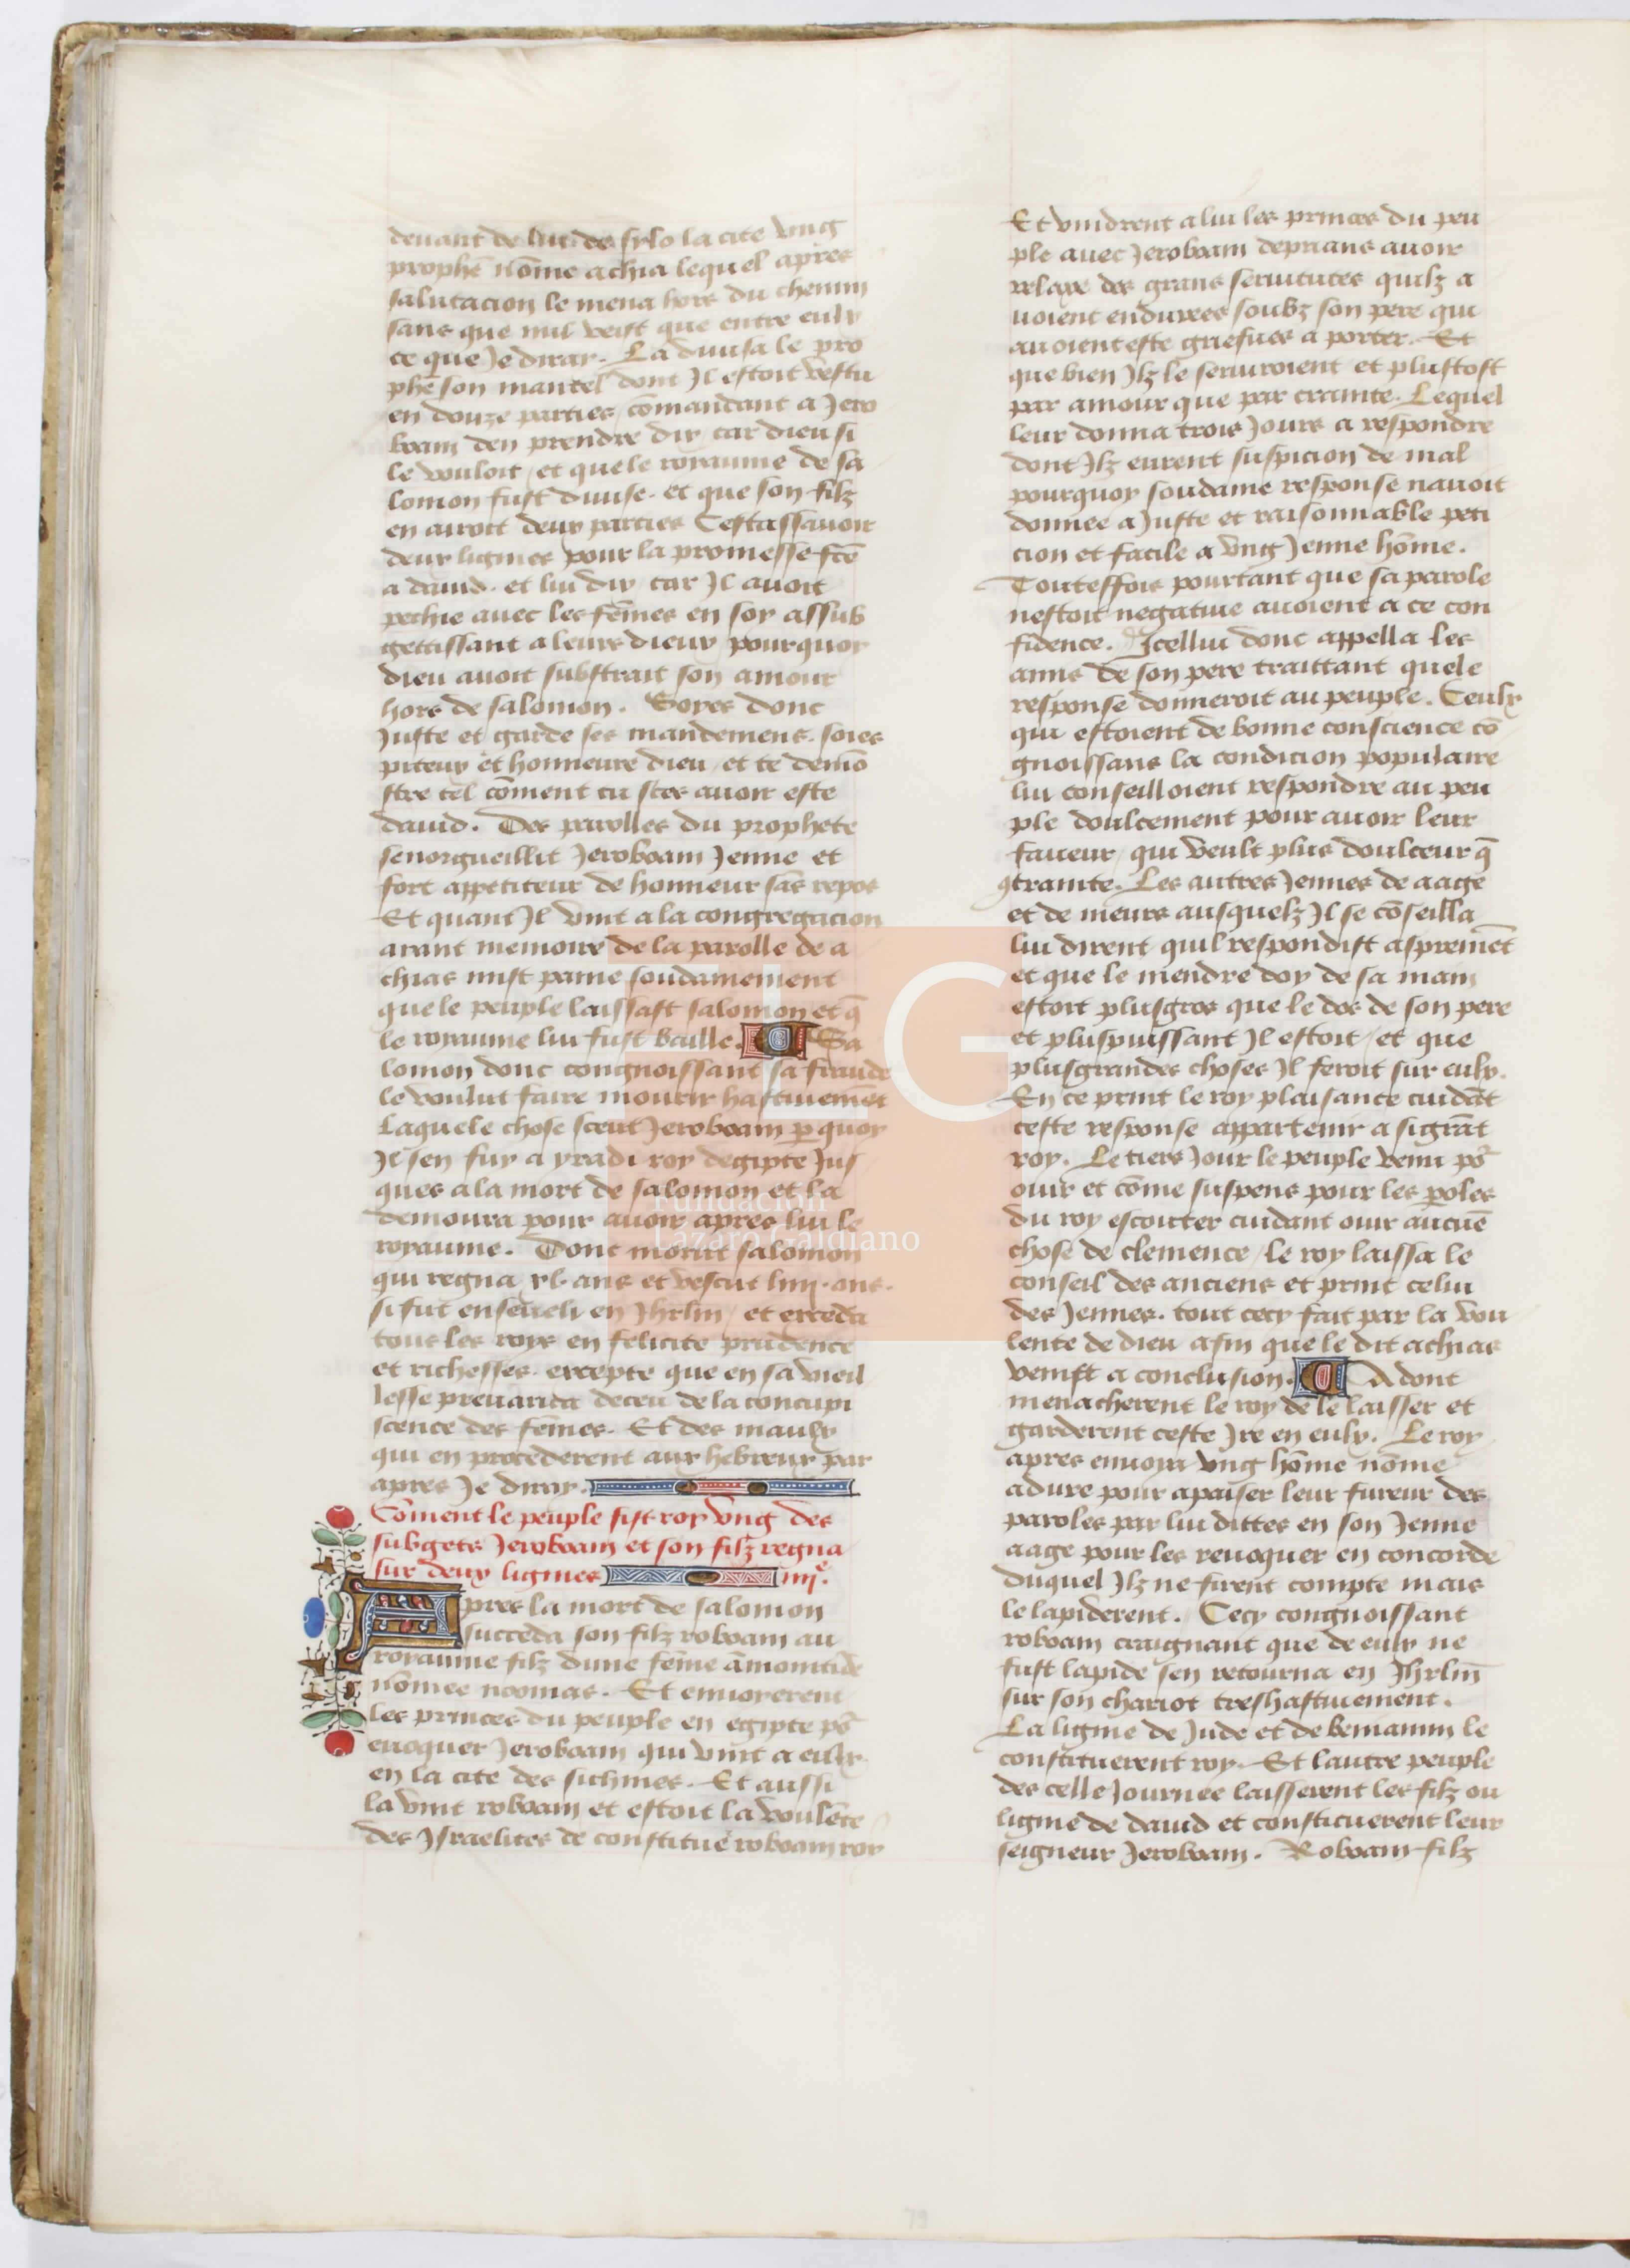 deuant de lui de sylo la cite vng
prophē nōme achia lequel apres
salutacion le mena hors du chemin
sans que nul veist que entre eulx
ce que Je diray. La diuisa le pro
phē son mantel dont Jl estoit vestu
en douze parties cōmandant a Jero
boam den prendre dix car dieu si
le vouloit et que le royaume de sa
lomon fust diuise. et que son filz
en auroit deux parties Cestassauoir
deux lignies pour la promesse fcē
a dauid. et lui dix car Jl auoit
pechie auec les fēmes en soy assub
gettissant a leurs dieux pourquoy
dieu auoit substrait son amour
hors de salomon. Soyes donc
Juste et garde ses mandemens. soies
piteux et honneure dieu et te demō
stre tel cōment tu sces auoir este
dauid. Des parolles du prophete
senorgueillit Jeroboam Jenne et
fort appetiteur de honneur sās repos
Et quant Jl vint a la congregacion
aiant memoire de la parolle de a
chias mist paine soudainement
que le peuple laissast salomon et q̄
le royaume lui fust baille. Sa
lomon donc congnoissant sa fraude
le voulut faire mourir hastiuemēt
Laquele chose sceut Jeroboam ꝑ quoy
Jl sen fuy a yradi roy degipte Jus
ques a la mort de salomon et la
demoura pour auoir apres lui le
royaume. Donc morut salomon
qui regna xl. ans et vescut liiij. ans.
si fut enseueli en Jhrlm et exceda
tous les roys en felicite prudence
et richesses. excepte que en sa vieil
lesse preuarica deceu de la concupi
scence des fēmes. Et des maulx
qui en procederent aux hebreux par
apres Je diray.
Cōment le peuple fist roy vng des
subgets Jeroboam et son filz regna
sur deux lignies iiijᵉ.
Apres la mort de salomon
succeda son filz roboam au
royaume filz dune fēme āmonitide
nōmee noomas. Et enuoyerent
les princes du peuple en egipte pōr
euoquer Jeroboam qui vint a eulx
en la cite des sichines. Et aussi
la vint roboam et estoit la voulēte
des Jsraelites de constitue roboam roy
Et vindrent a lui les princes du peu
ple auec Jeroboam deprians auoir
relaxe des grans seruitutes quilz a
uoient endurees soubz son pere qui
auoient este griefues a porter. Et
que bien Jlz le seruiroient et plustost
par amour que par crainte. Lequel
leur donna trois Jours a respondre
dont Jlz eurent suspicion de mal
pourquoy soudaine response nauoit
donnee a Juste et raisonnable peti
cion et facile a vng Jenne hōme.
Touteffois pourtant que sa parole
nestoit negatiue auoient a ce con
fidence. Jcellui donc appella les
amis de son pere traittant quele
response donneroit au peuple. Ceulx
qui estoient de bonne conscience cō
gnoissans la condicion populaire
lui conseilloient respondre au peu
ple doulcement pour auoir leur
faueur qui veult plus doulceur q̄
ꝯtrainte. Les autres Jennes de aage
et de meurs ausquelz Jl se cōseilla
lui dirent quil respondist aspremēt
et que le mendre doy de sa main
estoit plusgros que le dos de son pere
et pluspuissant Jl estoit et que
plusgrandes choses Jl feroit sur eulx.
En ce print le roy plaisance cuidāt
ceste response appartenir a si grāt
roy. Le tiers Jour le peuple venu pōr
ouir et cōme suspens pour les ꝑoles
du roy escouter cuidant ouir aucūe
chose de clemence le roy laissa le
conseil des anciens et print celui
des Jennes. tout cecy fait par la vou
lente de dieu afin que le dit achias
venist a conclusion. Adont
menacherent le roy de le laisser et
garderent ceste Jre en eulx. Le roy
apres enuoya vng hōme nōme
adure pour apaiser leur fureur des
paroles par lui dittes en son Jenne
aage pour les reuoquer en concorde
duquel Jlz ne firent compte mais
le lapiderent. Cecy congnoissant
roboam craignant que de eulx ne
fust lapide sen retourna en Jhrlm̄
sur son chariot treshastiuement.
La lignie de Jude et de beniamin le
constituerent roy. Et lautre peuple
des celle Journee laisserent les filz ou
lignie de dauid et constituerent leur
seigneur Jeroboam. Roboam filz
LG
Fundación
Lázaro Galdiano
79